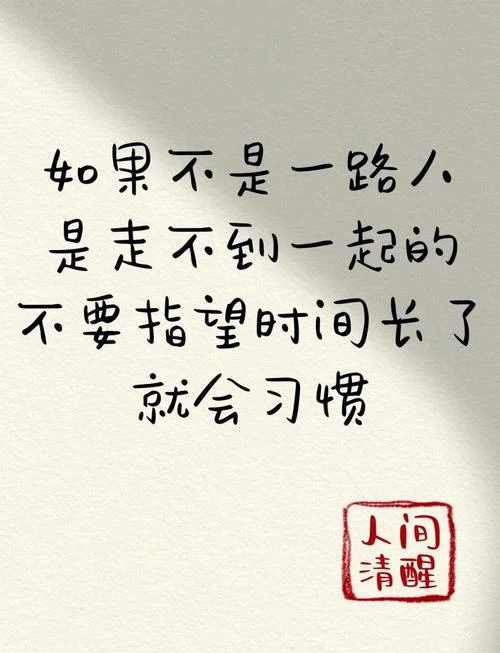 如果不是一路人
是走不到一起的
不要指望时间长了
就会习惯
人间
清醒